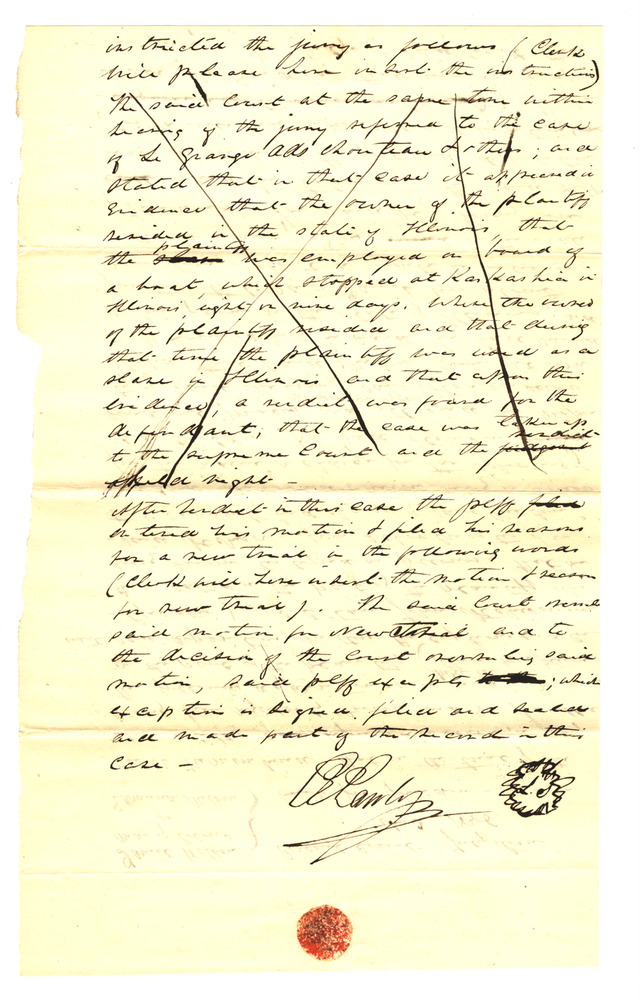 instructed the jury as follows (Clerk
will please here insert the instructions)
The said Court at the same time within
hearing of the jury referred to the case
of La Grange ads Chouteau & others; and
stated that in that case it appeared in
Evidence that the owner of the plaintiff
resided in the state of Illinois, that
the plaintiff was employed on board of
a boat, which stopped at Kaskaskia in
Illinois, eight or nine days. Where the owner
of the plaintiff resided and that during
that time the plaintiff was used as a
slave in Illinois and that upon this
Evidence, a verdict was found for the
defendant; that the case was taken up
to the supreme Court and the verdict
held right —
After Verdict in this case the plff
entered his motion & filed his reasons
for a new trial in the following words
(Clerk will here insert the motion & reasons
for new trial). The said Court overruled
said motion for New trial and to
the decision of the Court overruling said
motion, said plff excepts; which
exception is signed, filed and sealed
and made part of the record in this
Case —
L. S.